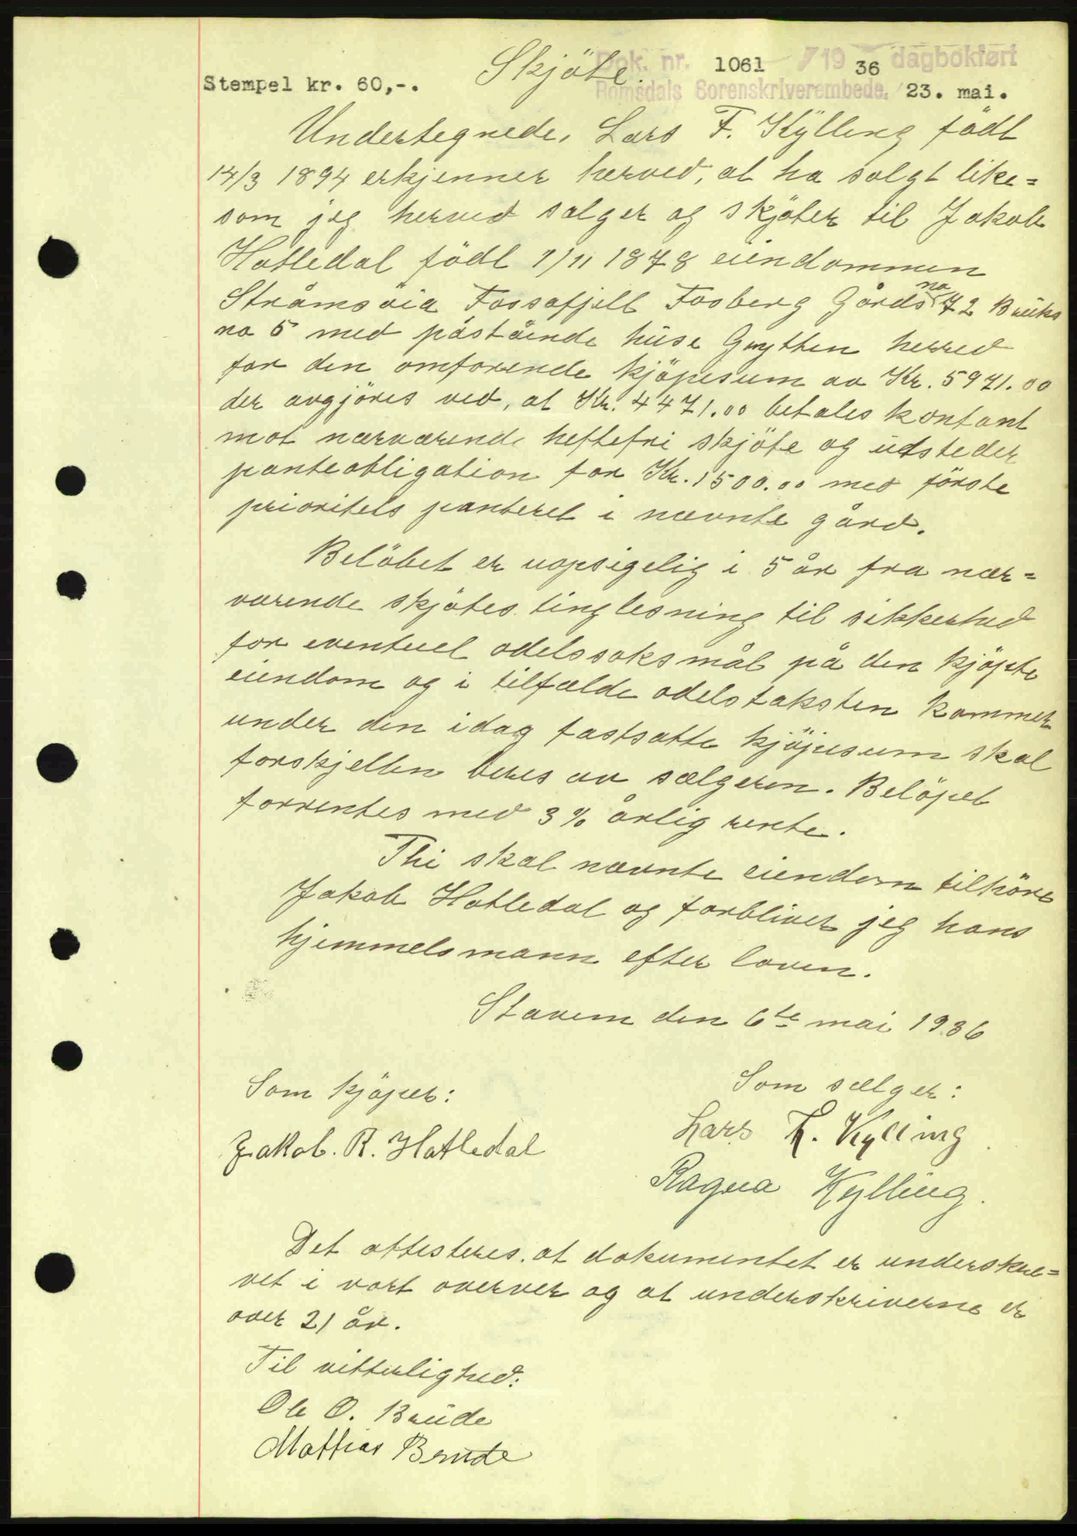 Skjöte.
Dok. nr. 1061 /19 36 dagbokført
Stempel kr. 60,-.
Romsdals Sorenskriverembede. 23. mai.
Undertegnede, Lars F. Kylling födt
14/3 1894 erkjenner herved, at ha solgt like=
som jeg herved sælger og skjöter til Jakob
Hatledal födt 7/11 1878 eiendommen
Strömsöia Fossafjell Fosberg Gårds no 72 Bruks
no 5 med påstående huse Grytten herred
for den omforende kjöpesum av Kr. 5971.00
der avgjöres ved, at Kr. 4471.00 betales kontant
mot nærværende heftefri skjöte og udsteder
panteobligation for Kr. 1500.00 med förste
prioritets panteret i nævnte gård.
Belöbet er uopsigelig i 5 år fra nær=
værende skjötes tinglesning til sikkerhed
for eventuel odelssøksmål på den kjöpte
eiendom og i tilfælde odelstaksten kommer
under den idag fastsatte kjöpesum skal
forskjellen beres av sælgeren. Belöpet
forrentes med 3 % årlig rente.
Thi skal nævnte eiendom tilhöre
Jakob Hatledal og forbliver jeg hans
hjemmelsmann efter loven.
Stavem den 6te mai 1936
Som kjöper:
Jakob. R. Hatledal
Som sælger:
Lars F. Kylling
Ragna Kylling.
Det attesteres. at dokumentet er underskre=
vet i vort overver og at underskriverne er
over 21 år.
Til vitterlighed:
Ole O. Brude
Mattias Brude